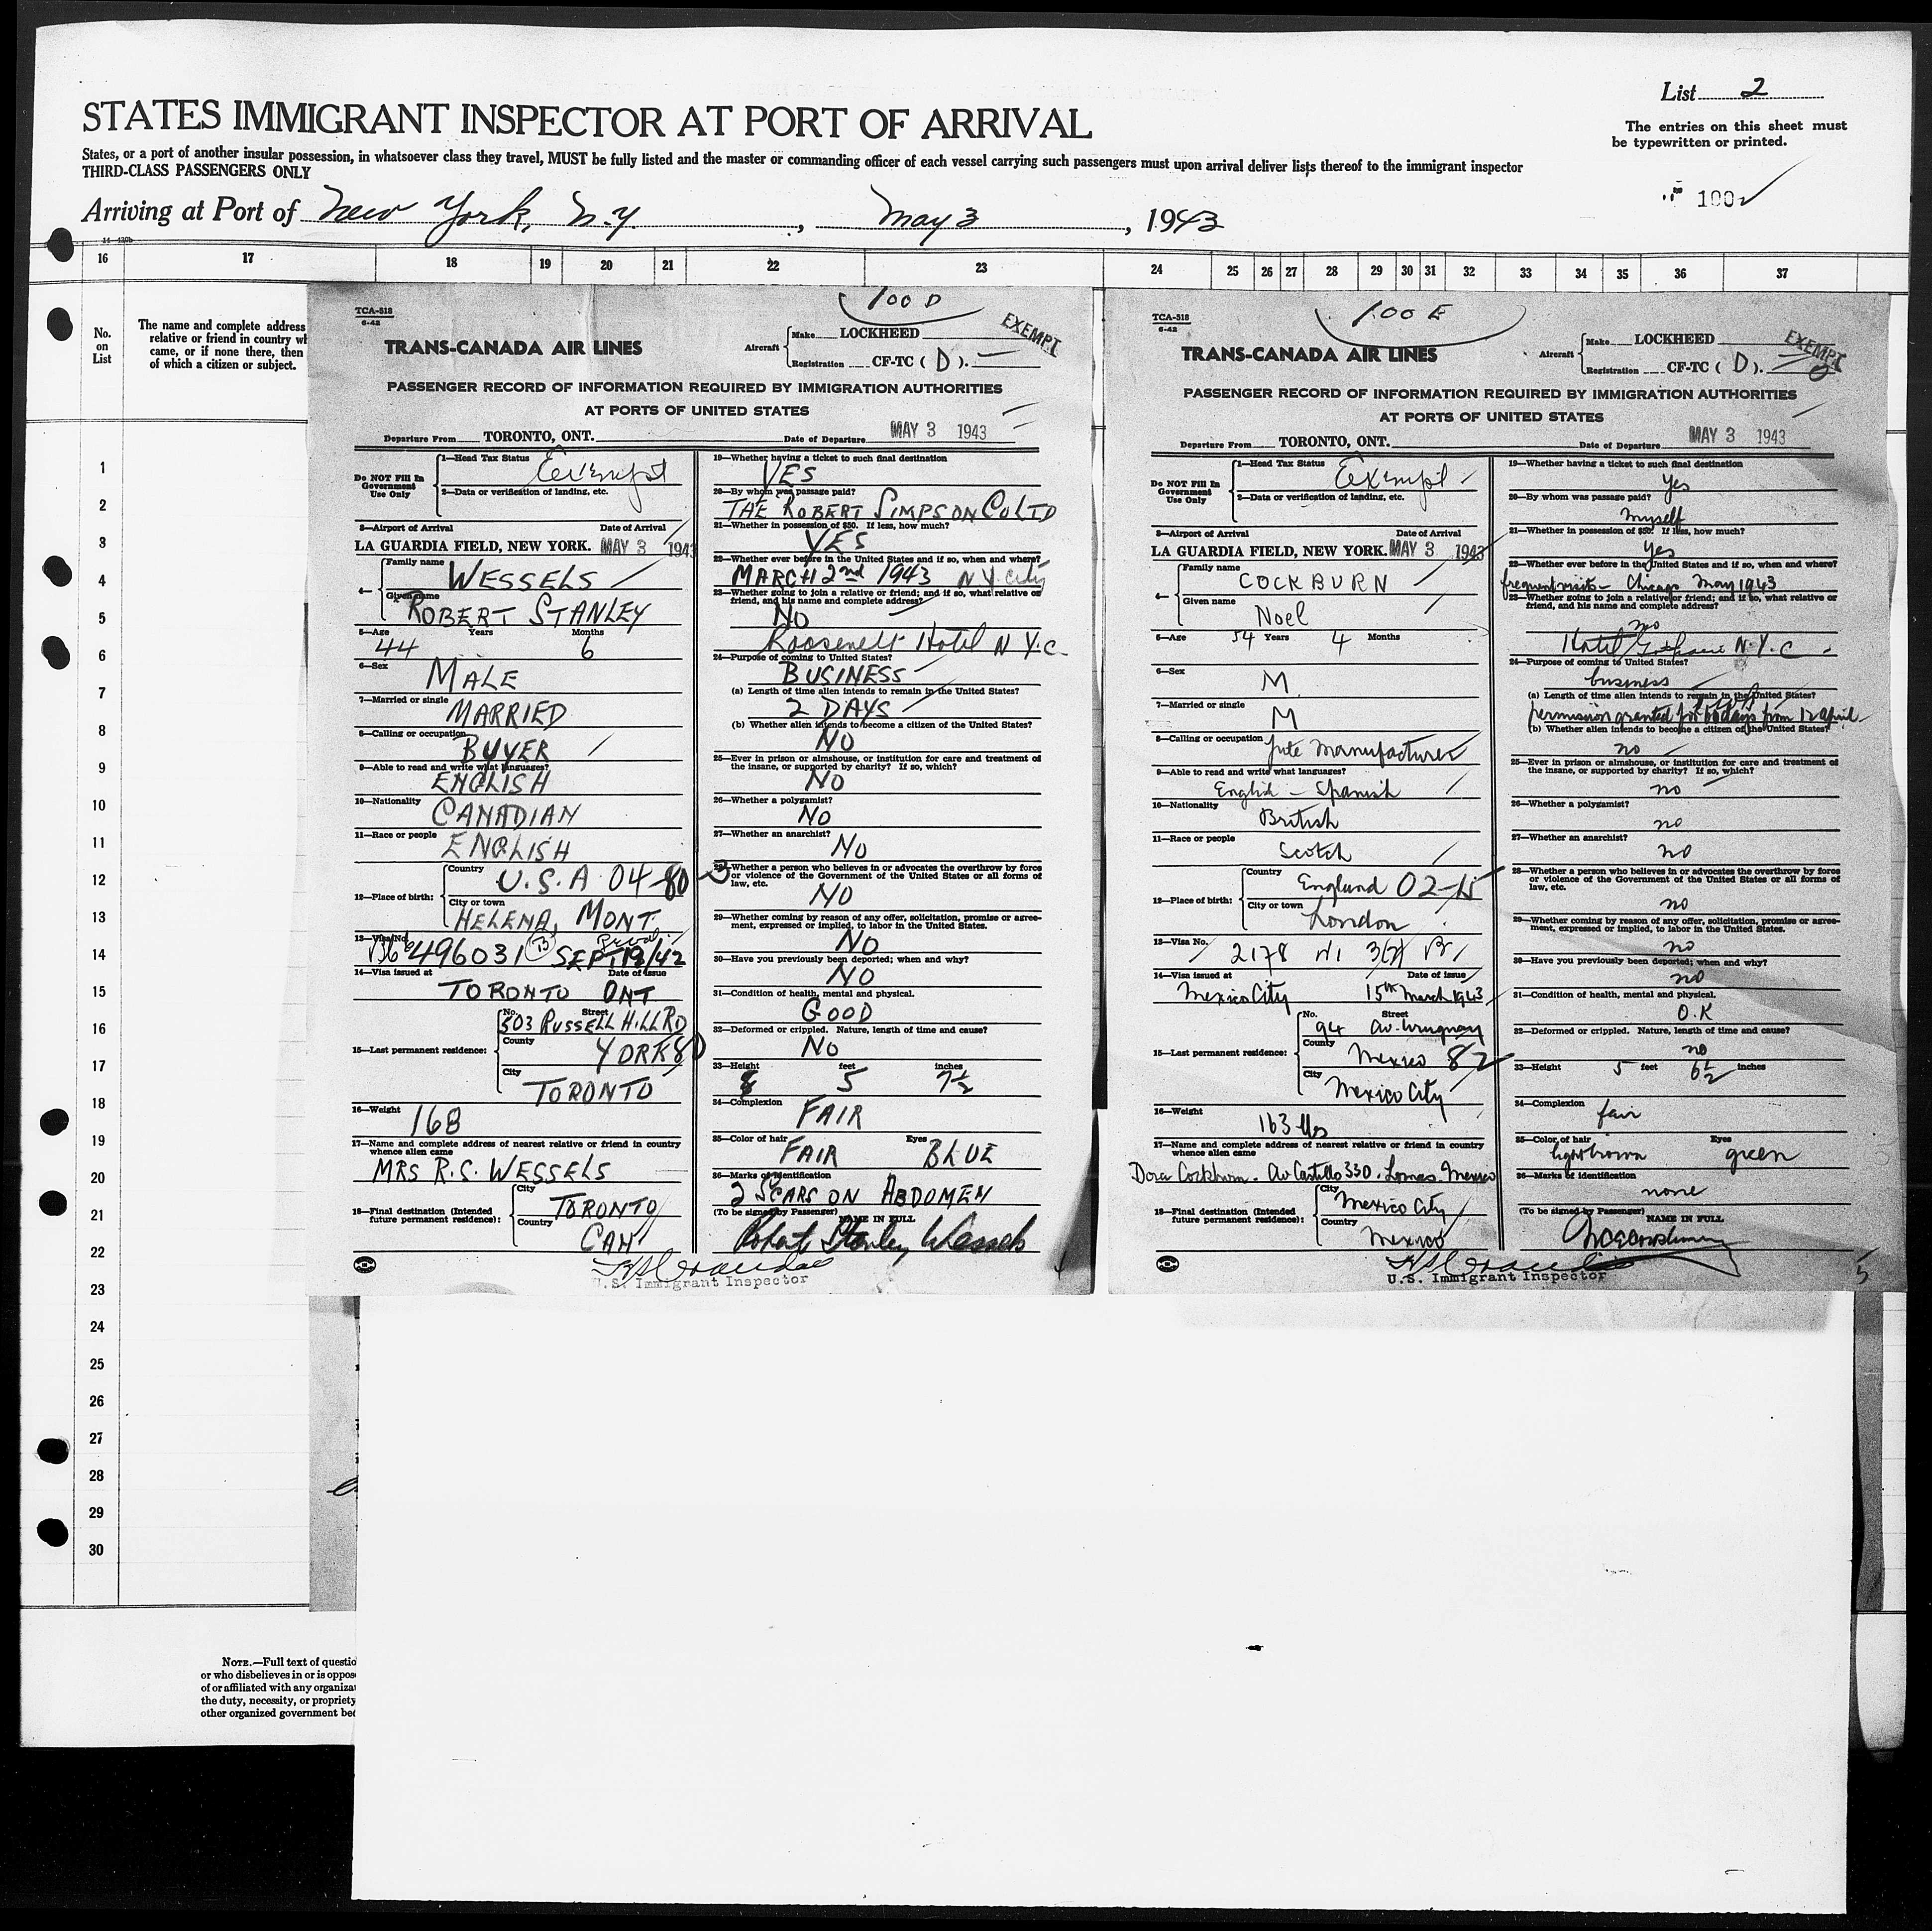 List 2
STATES IMMIGRANT INSPECTOR AT PORT OF ARRIVAL
The entries on this sheet must
be typewritten or printed.
States, or a port of another insular possession, in whatsoever class they travel, MUST be fully listed and the master or commanding officer of each vessel carrying such passengers must upon arrival deliver lists thereof to the immigrant inspector
THIRD-CLASS PASSENGERS ONLY
100
Arriving at Port of New York, N.Y. , May 3 , 1943
16 17 18 19 20 21 22 23 24 25 26 27 28 29 30 31 32 33 34 35 36 37
No.
on
List
The name and complete address
relative or friend in country wh
came, or if none there, then
of which a citizen or subject.
1
2
3
4
5
6
7
8
9
10
11
12
13
14
15
16
17
18
19
20
21
22
23
24
25
26
27
28
29
30
NOTE.—Full text of questio
or who disbelieves in or is oppos
of or affiliated with any organizat
the duty, necessity, or propriety
other organized government bec
100 D
TCA-518
6-42
TRANS-CANADA AIR LINES
Aircraft Make LOCKHEED
Registration CF-TC ( D ).
EXEMPT
PASSENGER RECORD OF INFORMATION REQUIRED BY IMMIGRATION AUTHORITIES
AT PORTS OF UNITED STATES
Departure From TORONTO, ONT. Date of Departure MAY 3 1943
Do NOT Fill In
Government
Use Only
1—Head Tax Status Exempt
2—Data or verification of landing, etc.
3—Airport of Arrival Date of Arrival
LA GUARDIA FIELD, NEW YORK. MAY 3 1943
4— Family name WESSELS
Given name ROBERT STANLEY
5—Age 44 Years Months 6
6—Sex MALE
7—Married or single MARRIED
8—Calling or occupation BUYER
9—Able to read and write what languages? ENGLISH
10—Nationality CANADIAN
11—Race or people ENGLISH
12—Place of birth: Country U.S.A 04-80-3
City or town HELENA, MONT.
13—Visa No. 496031 SEPT 19/42
14—Visa issued at Date of Issue
TORONTO ONT
15—Last permanent residence: No. Street 503 RUSSELL HILL RD
County YORK 80
City TORONTO
16—Weight 168
17—Name and complete address of nearest relative or friend in country
whence alien came
MRS R.S. WESSELS
18—Final destination (Intended
future permanent residence): City TORONTO
Country CAN
19—Whether having a ticket to such final destination
YES
20—By whom was passage paid?
THE ROBERT SIMPSON CO LTD
21—Whether in possession of $50. If less, how much?
YES
22—Whether ever before in the United States and if so, when and where?
MARCH 2nd 1943 N Y. City
23—Whether going to join a relative or friend; and if so, what relative or
friend, and his name and complete address?
NO
Roosevelt Hotel N Y.C.
24—Purpose of coming to United States?
BUSINESS
(a) Length of time alien intends to remain in the United States?
2 DAYS
(b) Whether alien intends to become a citizen of the United States?
NO
25—Ever in prison or almshouse, or institution for care and treatment of
the insane, or supported by charity? If so, which?
NO
26—Whether a polygamist?
NO
27—Whether an anarchist?
NO
28—Whether a person who believes in or advocates the overthrow by force
or violence of the Government of the United States or all forms of
law, etc.
NO
29—Whether coming by reason of any offer, solicitation, promise or agree-
ment, expressed or implied, to labor in the United States.
NO
30—Have you previously been deported; when and why?
NO
31—Condition of health, mental and physical.
GOOD
32—Deformed or crippled. Nature, length of time and cause?
NO
33—Height feet inches
5 7½
34—Complexion
FAIR
35—Color of hair Eyes
FAIR BLUE
36—Marks of identification
2 SCARS ON ABDOMEN
(To be signed by Passenger) NAME IN FULL
Robert Stanley Wessels
U.S. Immigrant Inspector
100 E
TCA-518
6-42
TRANS-CANADA AIR LINES
Aircraft Make LOCKHEED
Registration CF-TC ( D ).
EXEMPT
PASSENGER RECORD OF INFORMATION REQUIRED BY IMMIGRATION AUTHORITIES
AT PORTS OF UNITED STATES
Departure From TORONTO, ONT. Date of Departure MAY 3 1943
Do NOT Fill In
Government
Use Only
1—Head Tax Status Exempt
2—Data or verification of landing, etc.
3—Airport of Arrival Date of Arrival
LA GUARDIA FIELD, NEW YORK. MAY 3 1943
4— Family name COCKBURN
Given name Noel
5—Age 54 Years 4 Months
6—Sex M.
7—Married or single M
8—Calling or occupation Jute Manufacturer
9—Able to read and write what languages?
English - Spanish
10—Nationality British
11—Race or people Scotch
12—Place of birth: Country England 02-
City or town London
13—Visa No. 2178
14—Visa issued at Date of Issue
Mexico City 15th March 1943
15—Last permanent residence: No. Street 94 Av. Uruguay
County Mexico 82
City Mexico City
16—Weight 163 lbs
17—Name and complete address of nearest relative or friend in country
whence alien came
Dora Cockburn. Av Castillo 330. Lomas. Mexico
18—Final destination (Intended
future permanent residence): City Mexico City
Country Mexico
19—Whether having a ticket to such final destination
Yes
20—By whom was passage paid?
myself
21—Whether in possession of $50. If less, how much?
Yes
22—Whether ever before in the United States and if so, when and where?
frequent visits - Chicago May 1943
23—Whether going to join a relative or friend; and if so, what relative or
friend, and his name and complete address?
no
Hotel Gotham N.Y.C
24—Purpose of coming to United States?
business
(a) Length of time alien intends to remain in the United States?
permission granted for 60 days from 12 April
(b) Whether alien intends to become a citizen of the United States?
no
25—Ever in prison or almshouse, or institution for care and treatment of
the insane, or supported by charity? If so, which?
no
26—Whether a polygamist?
no
27—Whether an anarchist?
no
28—Whether a person who believes in or advocates the overthrow by force
or violence of the Government of the United States or all forms of
law, etc.
no
29—Whether coming by reason of any offer, solicitation, promise or agree-
ment, expressed or implied, to labor in the United States.
no
30—Have you previously been deported; when and why?
no
31—Condition of health, mental and physical.
O.K
32—Deformed or crippled. Nature, length of time and cause?
no
33—Height 5 feet 6½ inches
34—Complexion
fair
35—Color of hair Eyes
light brown green
36—Marks of identification
none
(To be signed by Passenger) NAME IN FULL
U.S. Immigrant Inspector
5